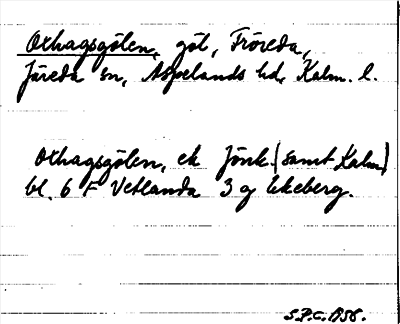 Oxhagsgölen, göl, Fröreda,
Järeda sn, Aspelands hd, Kalm. l.
Oxhagsgölen, ek Jönk. (samt Kalm)
bl. 6 F Vetlanda 3 g Ekeberg.
S.P.C. 1958.